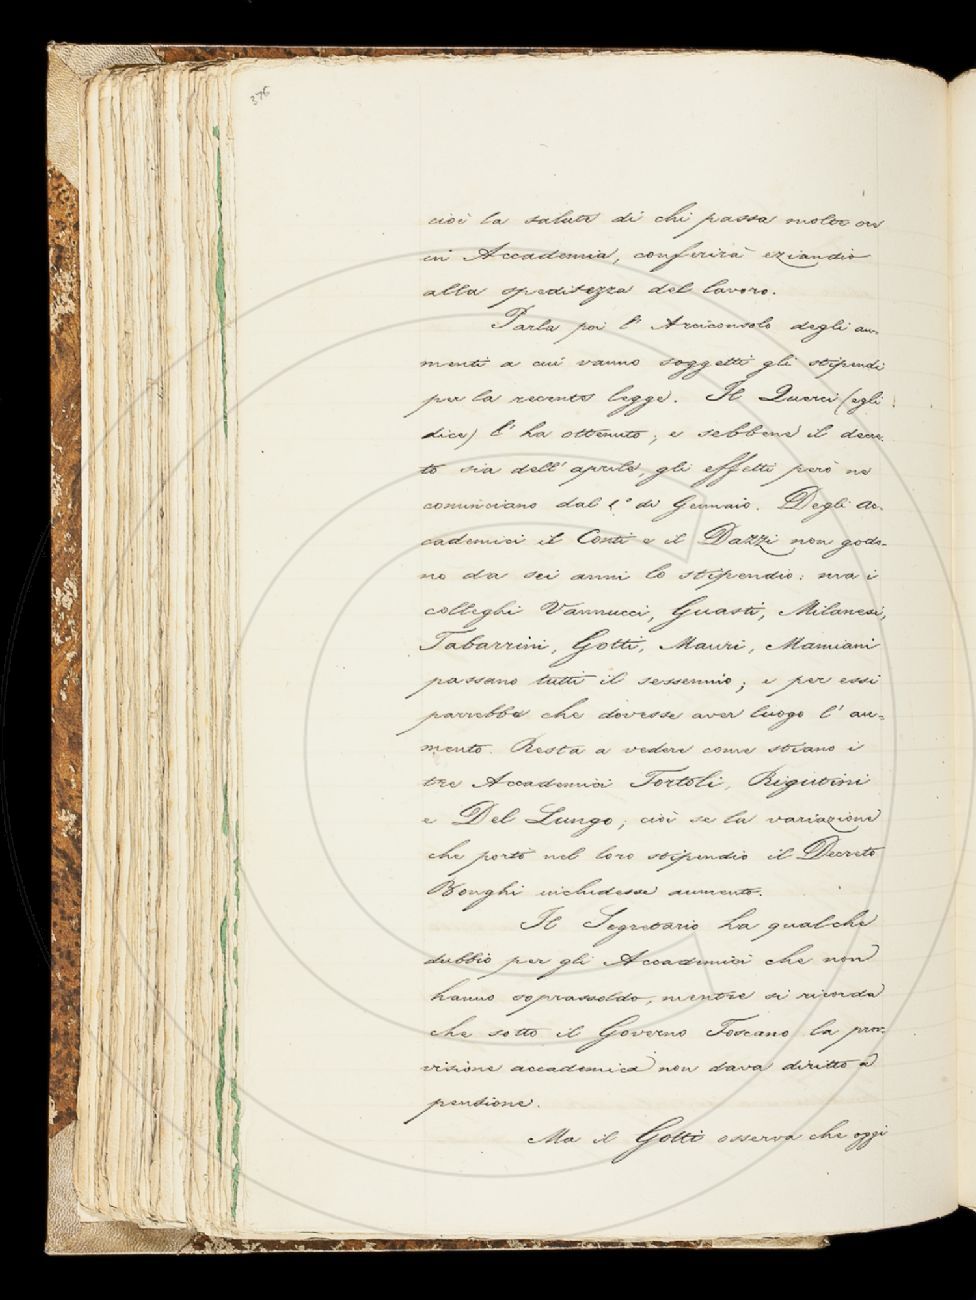 376
cioè la salute di chi passa molte ore
in Accademia, conferirà eziandio
alla speditezza del lavoro.
Parla poi l'Arciconsolo degli au-
menti a cui vanno soggetti gli stipendi
per la recente legge. Il Querci (egli
dice) l'ha ottenuto; e sebbene il decre-
to sia dell'aprile, gli effetti però ne
cominciano dal 1º di Gennaio. Degli Ac-
cademici il Conti e il Dazzi non godo-
no da sei anni lo stipendio: ma i
colleghi Vannucci, Guasti, Milanesi,
Tabarrini, Gotti, Mauri, Mamiani
passano tutti il sessennio; e per essi
parrebbe che dovesse aver luogo l'au-
mento. Resta a vedere come stiano i
tre Accademici Tortoli, Rigutini
e Del Lungo; cioè se la variazione
che portò nel loro stipendio il Decreto
Bonghi inchidesse aumento.
Il Segretario ha qualche
dubbio per gli Accademici che non
hanno soprassoldo, mentre si ricorda
che sotto il Governo Toscano la prov-
visione accademica non dava diritto a
pensione.
Ma il Gotti osserva che oggi